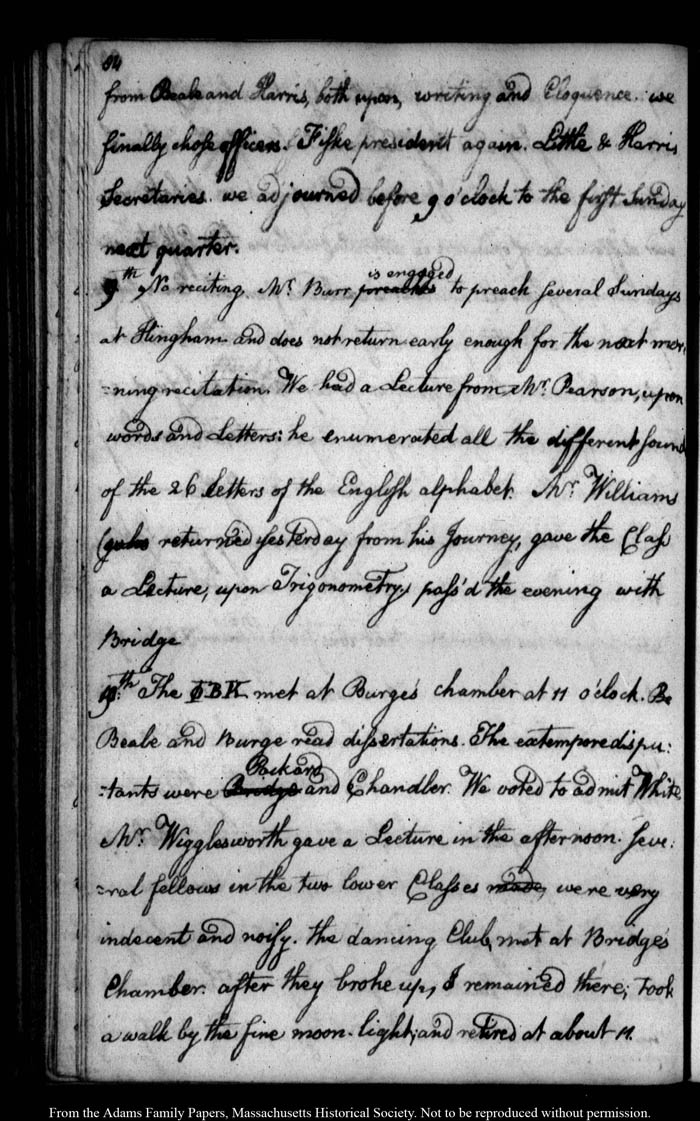 94
from Beale and Harris, both upon, writing and Eloquence. we
finally chose officers. Fiske president again. Little & Harris
Secretaries. we adjourned before 9 o'clock to the first Sunday
next quarter.
is engaged
9th No reciting. Mr. Burr preaches to preach several Sundays
at Hingham and does not return early enough for the next mor,
=ning recitation. We had a Lecture from Mr. Pearson, upon
words and Letters: he enumerated all the different sound
of the 26 Letters of the English alphabet. Mr. Williams
(who returned yesterday from his Journey, gave the Class
a Lecture, upon Trigonometry, pass'd the evening with
Bridge
The ΦBK met at Burge's chamber at 11 o'clock. Be
Beale and Burge read dissertations. The extempore dispu:
Packard
=tants were Bridge and Chandler. We voted to admit White
Mr. Wigglesworth gave a Lecture in the afternoon. Seve:
=ral fellows in the two lower Classes made, were very
indecent and noisy. the dancing Club, met at Bridge's
Chamber. after they broke up, I remained there; took
a walk by the fine moon-light; and retired at about 11.
From the Adams Family Papers, Massachusetts Historical Society. Not to be reproduced without permission.